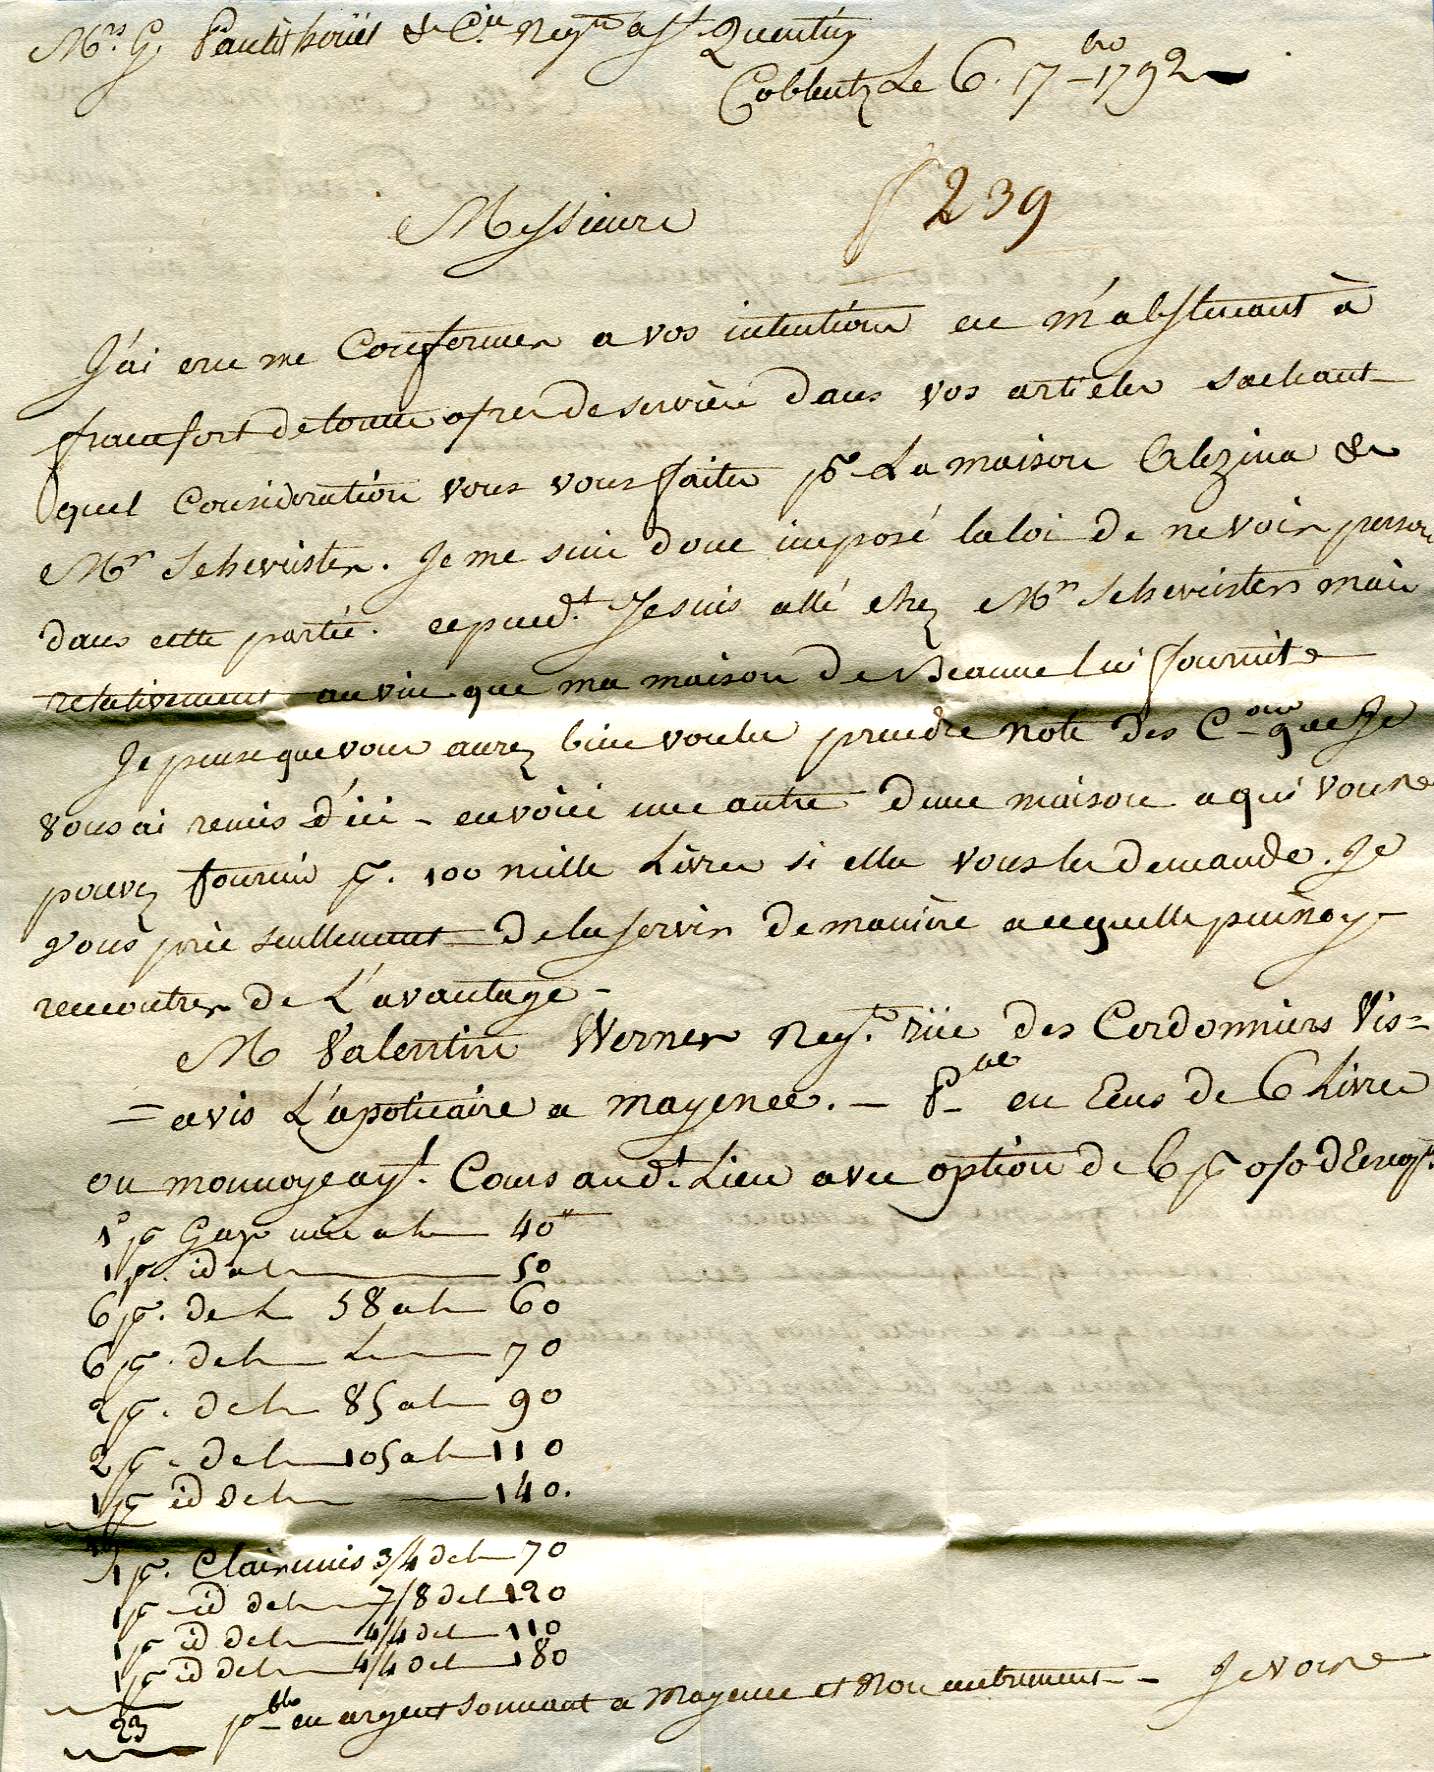 Mrs. G. Paulet houïet & Cie Negts a St Quentin
Coblentz Le 6. 7bre 1792
f 239
Messieurs
J'ai cru me Conformer a vos intentions en m'abstenant à
francfort de toutte ofres de service dans vos articles sachant
quel Consideration vous vous faites pr La maison Alezina &
Mr Schevister. Je me suis donc imposé la loi de ne voir person
dans cette partie. cepend.t Je suis allé chez Mr Schevister mais
relativement au vin que ma maison de Beaune lui fournit
Je pense que vous aurez bien voulu prendre note des Cons que Je
vous ai remis d'ici - en voici une autre d'une maison a qui vous
pouvez fournir p. 100 mille Livres si elle vous les demande. Je
vous prie seullement De la servir de manière a ce quelle puisse y
rencontrer de L'avantage -
M Valentin Werner Negt. rüe des Cordonniers Vis=
=avis L'apoticaire a mayence. - Pble en Ecus de 6 Livres
ou monnoye ayt. Cours aud.t Lieu avec option de 6 p o/o d'Escpt.
1 p Gaze unie a L 40"
1 p. id a L 50
6 p. de L 58 a L 60
6 p. de L 70
2 p. de L 85 a L 90
2 p. de L 105 a L 110
1 p id de L 140.
19
1 p. Clair unis 3/4 de L 70
1 p id de L 7/8 de L 120
1 p id de L 4/4 de L 110
1 p id de L 4/4 de L 180
23 pble en argent sonnant a Mayence et Non autrement - Je vous